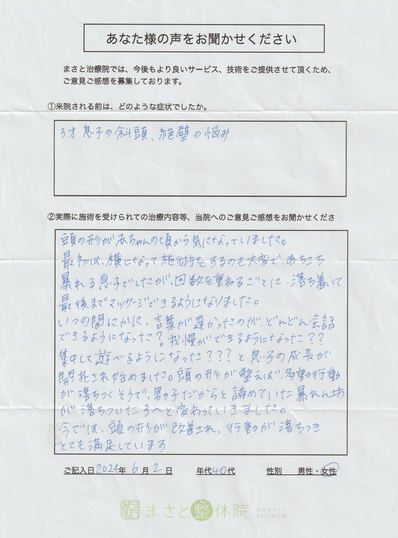 あなた様の声をお聞かせください
まさと治療院では、今後もより良いサービス、技術をご提供させて頂くため、
ご意見ご感想を募集しております。
①来院される前は、どのような症状でしたか。
3才 息子の斜頭、絶壁の悩み
②実際に施術を受けられての治療内容等、当院へのご意見ご感想をお聞かせくださ
頭の形が赤ちゃんの頃から気になっていました。
最初は、横になって施術をするのも大変で、あちこち
暴れる息子でしたが、回数を重ねるごとに、落ち着いて
最後までマッサージできるようになりました。
いつの間にかに、言葉が遅かったのが、どんどん会話
できるようになった？我慢ができるようになった？？
集中して遊べるようになった？？？と息子の成長が
開花され始めました。頭の形が整えば、多動行動
が落ちつくそうで、男の子だからと諦めていた暴れん坊
が落ちついた子へと変わっていきました。
今では、頭の形が改善され、行動が落ちつき
とても満足しています
ご記入日 2024年 6月 2日 年代 40代 性別 男性・女性
まさと整体院